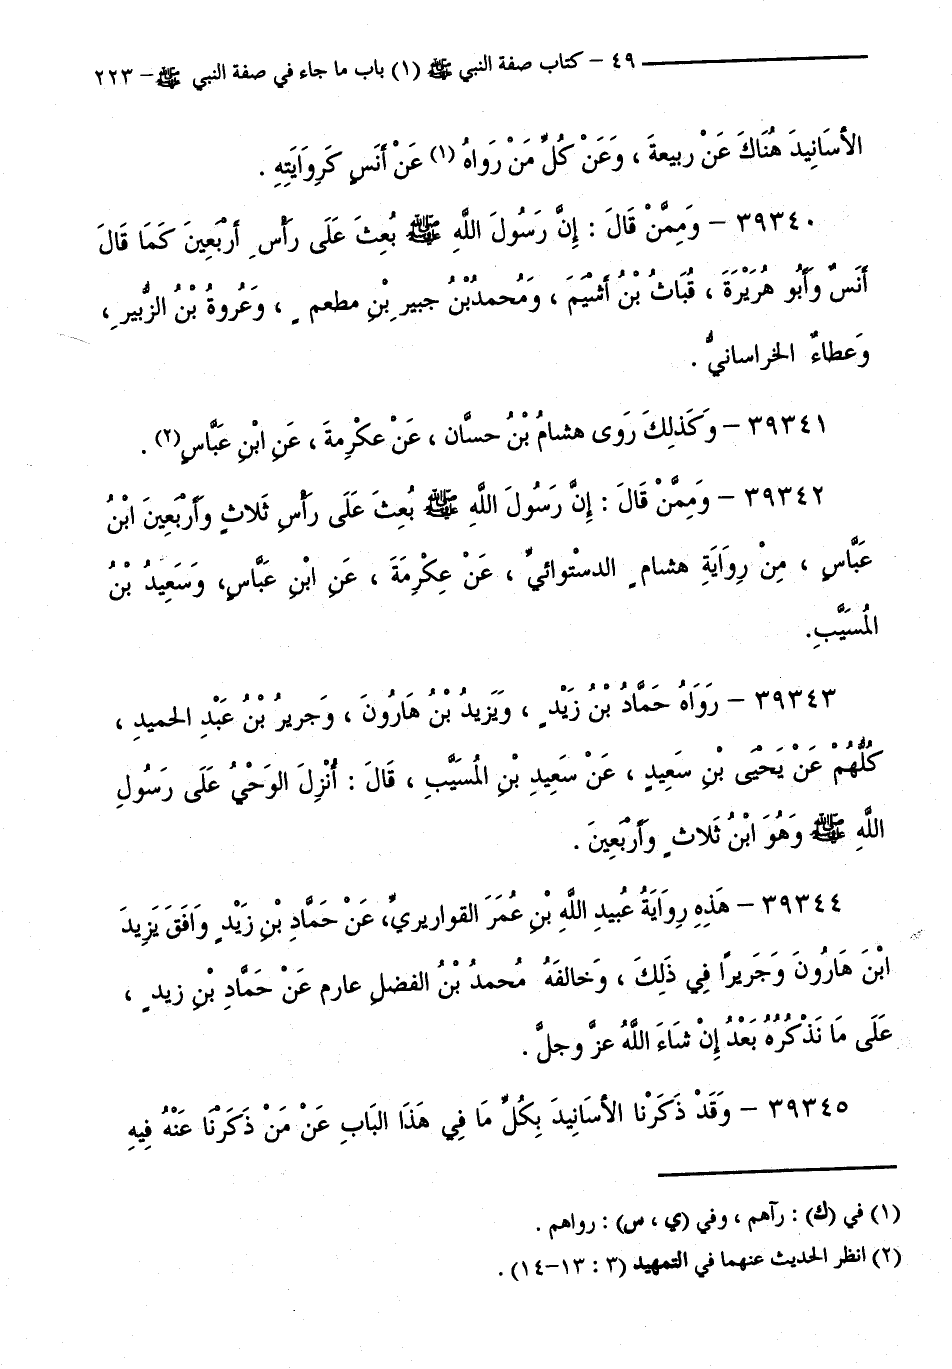 ٤٩ – كتاب صفة النبي ﷺ (١) باب ما جاء في صفة النبي ﷺ – ٢٢٣
الأسَانِيدَ هُنَاكَ عَنْ ربيعةَ ، وَعَنْ كُلِّ مَنْ رَوَاهُ (١) عَنْ أَنَسٍ كَرِوَايَتِهِ .
٣٩٣٤٠ – وَمِمَّنْ قَالَ : إِنَّ رَسُولَ اللَّهِ ﷺ بُعِثَ عَلَى رَأْسِ أرْبَعِينَ كَمَا قَالَ
أَنَسٌ وأَبُو هُرَيْرَةَ ، قُبَاثُ بْنُ أَشْيَمَ ، وَمُحمدُ بْنُ جبيرِ بْنِ مطعمٍ ، وَعُروةُ بْنُ الزُّبيرِ ،
وَعطاءٌ الخراسانيُّ .
٣٩٣٤١ – وكَذلِكَ رَوَى هشامُ بْنُ حسَّان ، عَنْ عكْرِمةَ ، عَنِ ابْنِ عَبَّاسٍ(٢) .
٣٩٣٤٢ – وَمِمَّنْ قَالَ : إِنَّ رَسُولَ اللَّهِ ﷺ بُعِثَ عَلَى رَأْسِ ثَلاثٍ وأَرْبَعِينَ ابْنُ
عَبَّاسٍ ، مِنْ رِوَايَةِ هشامٍ الدستْوائيِّ ، عَنْ عِكْرِمَةَ ، عَنِ ابْنِ عَبَّاسٍ، وَسَعِيدُ بْنُ
المُسَيَّبِ.
٣٩٣٤٣ – رَوَاهُ حَمَّادُ بْنُ زَيْدٍ ، وَيَزِيدُ بْنُ هَارُونَ ، وَجريرُ بْنُ عَبْدِ الحميدِ ،
كُلُّهُمْ عَنْ يَحْيَى بْنِ سَعِيدٍ ، عَنْ سَعِيدِ بْنِ المُسَيَّبِ ، قَالَ : أُنْزِلَ الوَحْيُ عَلَى رَسُولِ
اللَّهِ ﷺ وَهُوَ ابْنُ ثَلاثٍ وأَرْبَعِينَ .
٣٩٣٤٤ – هَذِهِ رِوَايَةُ عُبيدِ اللَّهِ بْنِ عُمَرَ القواريريِّ، عَنْ حَمَّادِ بْنِ زَيْدٍ وَافَقَ يَزِيدَ
ابْنَ هَارُونَ وَجَريرًا فِي ذَلِكَ ، وَخالفَهُ مُحمدُ بْنُ الفضلِ عارم عَنْ حَمَّادِ بْنِ زيدٍ ،
عَلَى مَا نَذْكُرُهُ بَعْدُ إِنْ شَاءَ اللَّهُ عزَّ وجلَّ .
٣٩٣٤٥ – وَقَدْ ذَكَرْنا الأسَانِيدَ بِكُلِّ مَا فِي هَذَا البَابِ عَنْ مَنْ ذَكَرْنَا عَنْهُ فِيهِ
(١) في (ك) : رآهم ، وفي (ي ، س) : رواهم .
(٢) انظر الحديث عنهما في التمهيد (٣ : ١٣–١٤) .